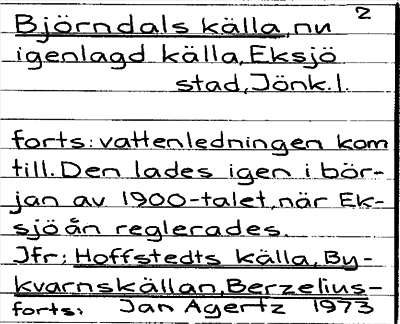 2
Björndals källa, nu
igenlagd källa, Eksjö
stad, Jönk.l.
forts: vattenledningen kom
till. Den lades igen i bör-
jan av 1900-talet, när Ek-
sjöån reglerades.
Jfr: Hoffstedts källa, By-
kvarnskällan, Berzelius-
forts: Jan Agertz 1973